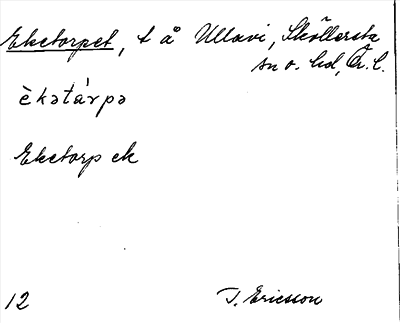 Eketorpet, t å Ullavi, Sköllersta
sn o. hd, Ör. l.
èkətárpə
Eketorp ek
12 T. Ericsson